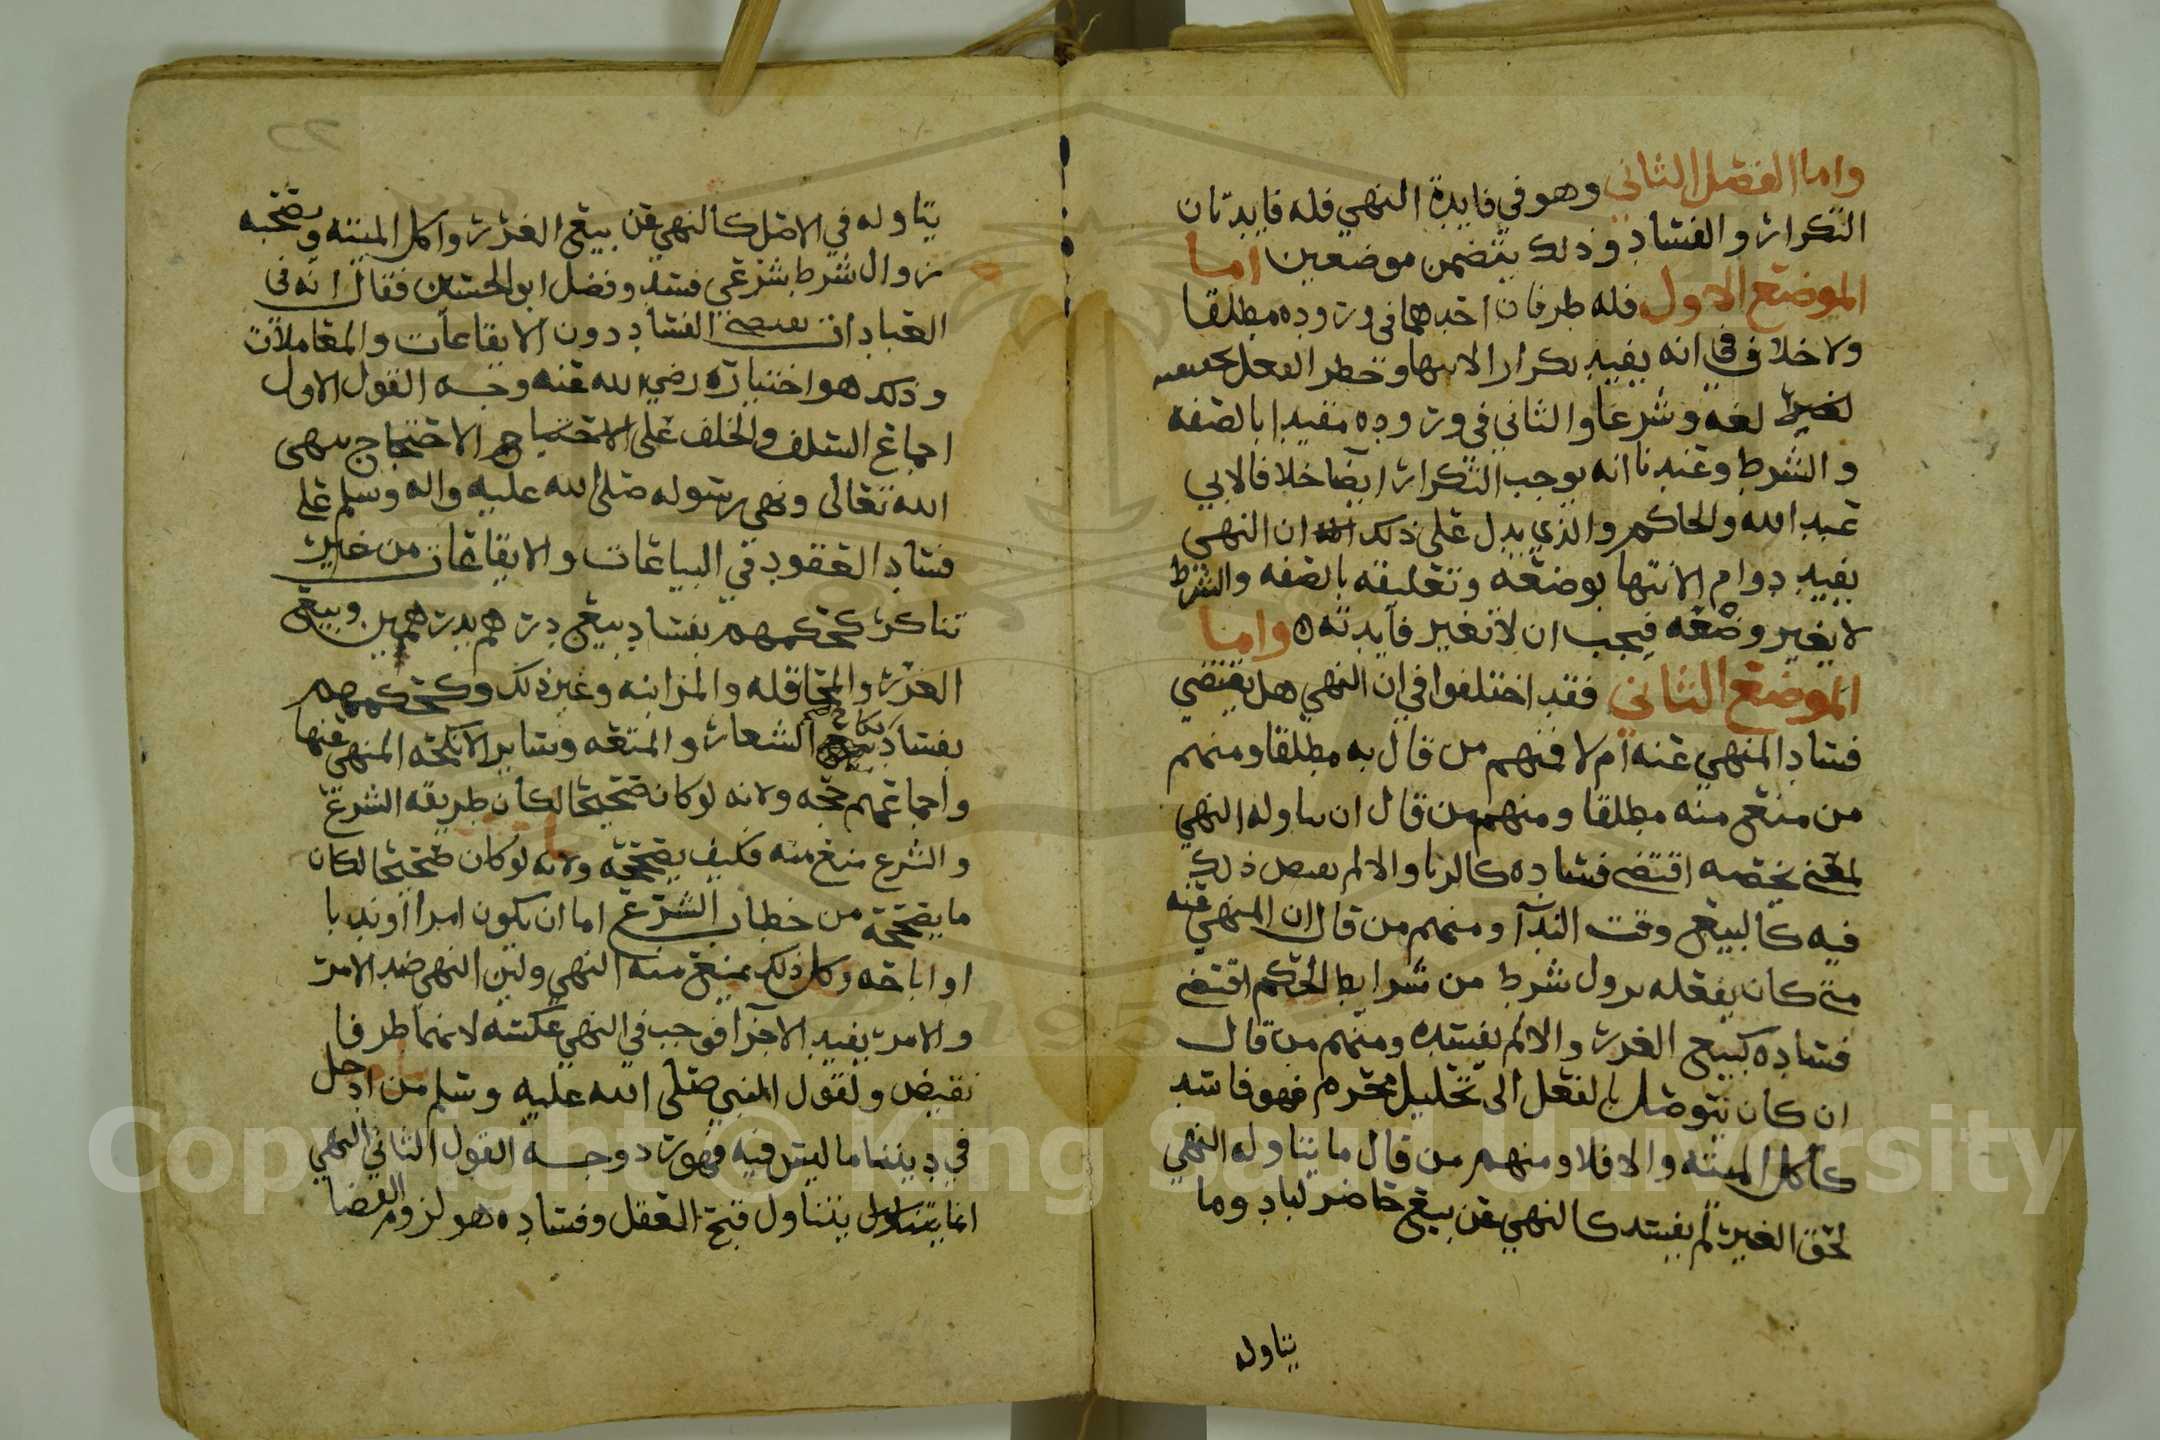 واما الفصل الثاني وهو في فايدة النهي فله فايدتان
التكرار والفساد وذلك يتضمن موضعين اما
الموضع الاول فله طرفان احدهما في وروده مطلقا
ولا خلاف في انه يفيد تكرار الانتها وحظر الفعل
لغة وشرعا والثاني في وروده مقيدا بالصفه
والشرط وعندنا انه يوجب التكرار ايضا خلافا لابي
عبد الله والحاكم والذي يدل على ذلك ان النهي
يفيد دوام الانتها بوضعه وتعليقه بالصفه والشرط
لا يغير وضعه فيجب ان لا تغير فايدته واما
الموضع الثاني فقد اختلفوا في ان النهي هل يقتضي
فساد المنهي عنه ام لا فمنهم من قال به مطلقا ومنهم
من منع منه مطلقا ومنهم من قال ان تناوله النهي
لمعنى يخصه اقتضى فساده كالزنا والا لم يقتض ذلك
فيه كالبيع وقت الندآ ومنهم من قال ان المنهي عنه
متى كان بفعله يزول شرط من شرايط الحكم اقتضى
فساده كبيع الغرر والا لم يفسده ومنهم من قال
ان كان يتوصل بالفعل الى تحليل محرم فهو فاسد
كاكل الميتة والا فلا ومنهم من قال ما يتناوله النهي
لحق الغير لم يفسد كالنهي عن بيع حاضر لباد وما
يتناوله
يتناوله في الاصل كالنهي عن بيع الغرر واكل الميتة
زوال شرط شرعي فسد وفصل ابو الحسين فقال انه في
العبادات يقتضي الفساد دون الايقاعات والمعاملات
وذلك هو اختياره رضي الله عنه وجه القول الاول
اجماع السلف والخلف على الاحتجاج بنهي
الله تعالى ونهي رسوله صلى الله عليه واله وسلم على
فساد العقود في البياعات والايقاعات من غير
تناكر كحكمهم بفساد بيع درهم بدرهمين وبيع
الغرر والمحاقله والمزابنه وغير ذلك وكحكمهم
بفساد نكاح الشغار والمتعه وساير الانكحه المنهي عنها
واجماعهم حجه ولانه لو كان صحيحا لكان طريقه الشرع
والشرع منع منه فكيف يصححه ولانه لو كان صحيحا لكان
ما يصححه من خطاب الشرع اما ان يكون امرا او ندبا
او اباحه وكل ذلك يمنع منه النهي ولين النهي ضد الامر
والامر يفيد الاجزآ فوجب في النهي عكسه لانهما طرفا
نقيض ولقول النبي صلى الله عليه وسلم من ادخل
في ديننا ما ليس فيه فهو رد وجه القول الثاني النهي
انما يتناول قبح الفعل وفساده هو لزوم القضا